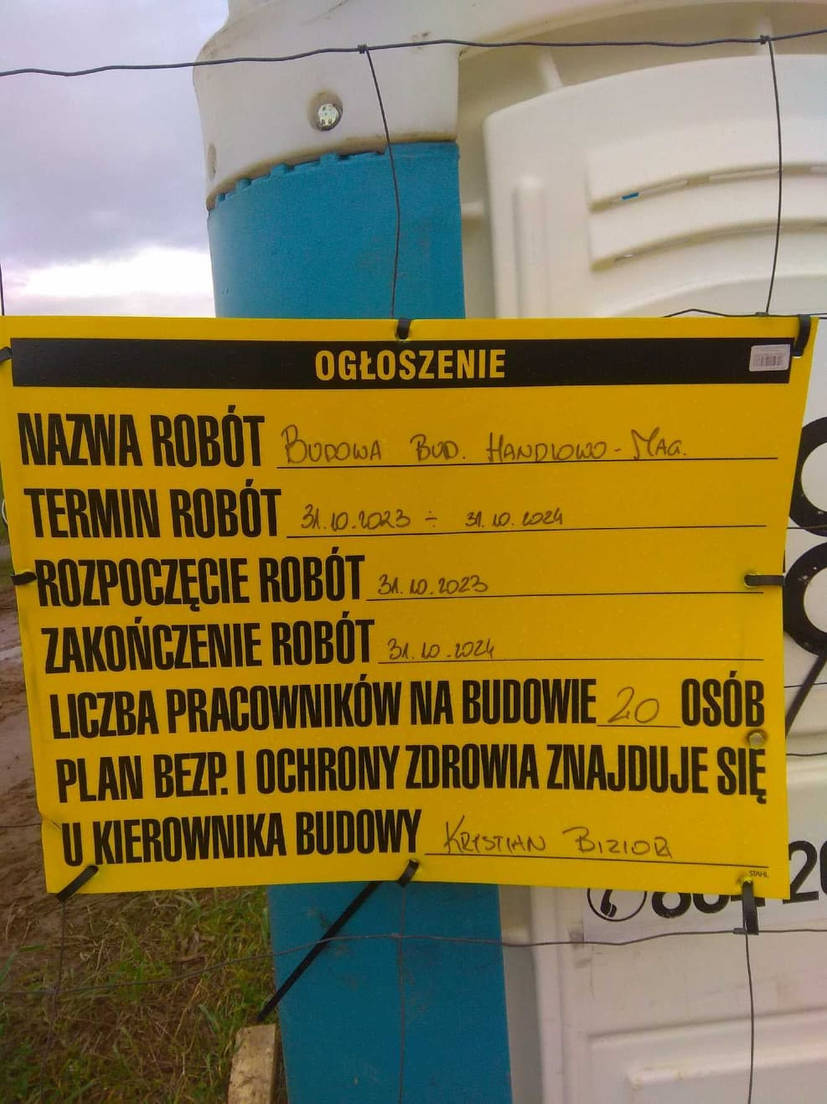 OGŁOSZENIE
NAZWA ROBÓT Budowa Bud. Handlowo - Mag.
TERMIN ROBÓT 31.10.2023 ÷ 31.10.2024
ROZPOCZĘCIE ROBÓT 31.10.2023
ZAKOŃCZENIE ROBÓT 31.10.2024
LICZBA PRACOWNIKÓW NA BUDOWIE 20 OSÓB
PLAN BEZP. I OCHRONY ZDROWIA ZNAJDUJE SIĘ
U KIEROWNIKA BUDOWY Krystian Bizior
STAHL